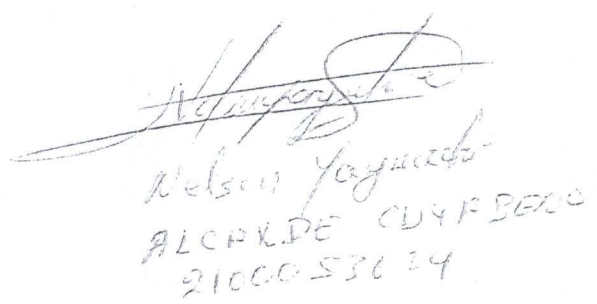 Nelson Yaguache
ALCALDE CUYABENO
2100053634